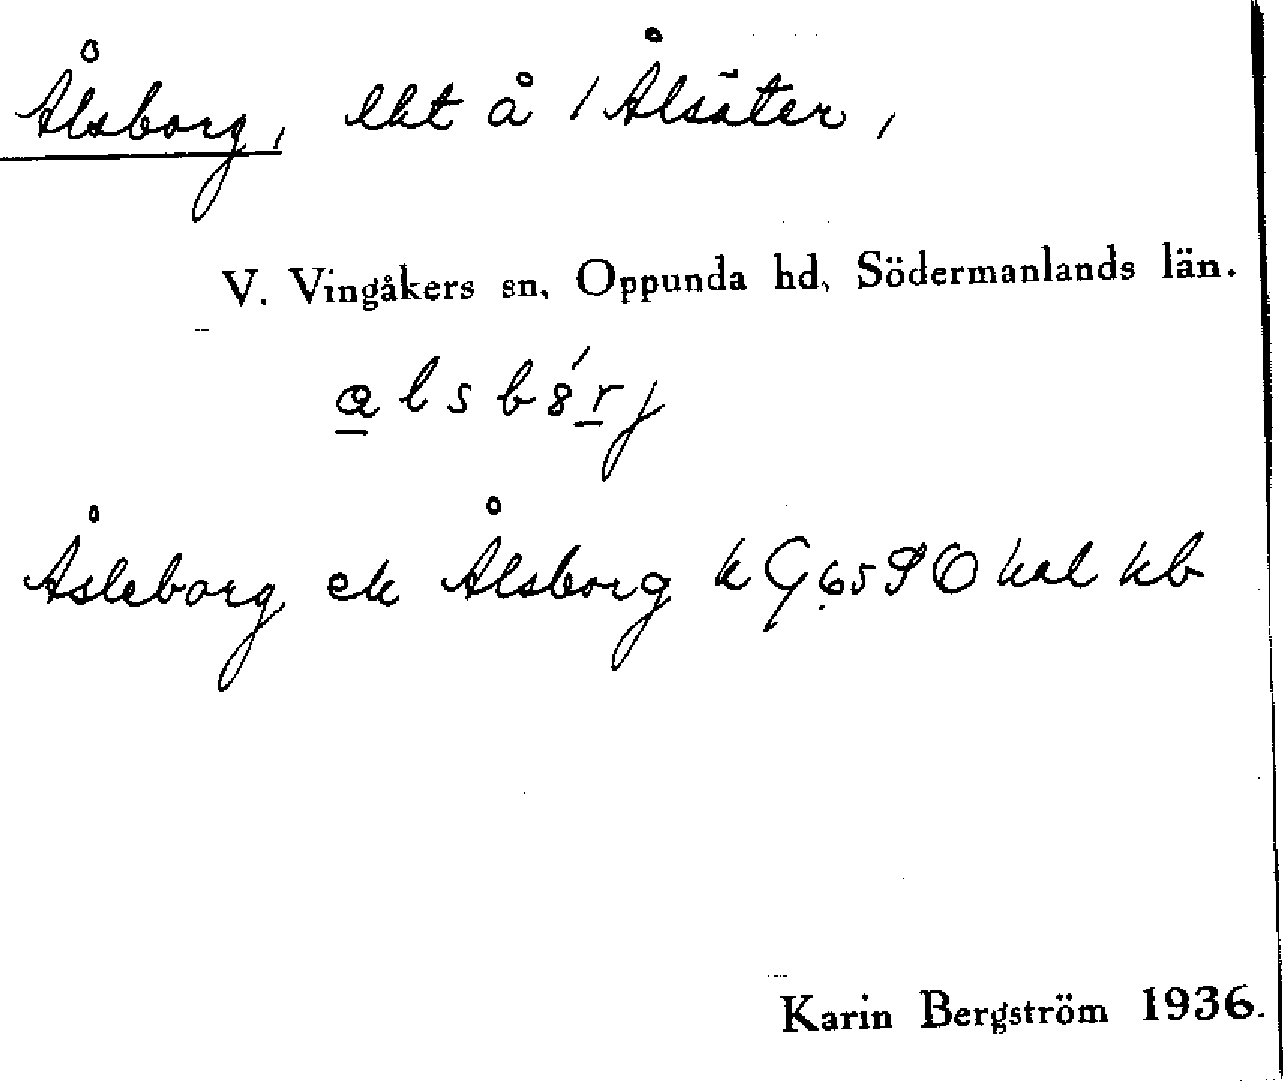 Ålsborg, lht å / Ålsäter,
V. Vingåkers sn, Oppunda hd, Södermanlands län.
alsbórj
Åsleborg ek Ålsborg k G 65 hal kb
Karin Bergström 1936.